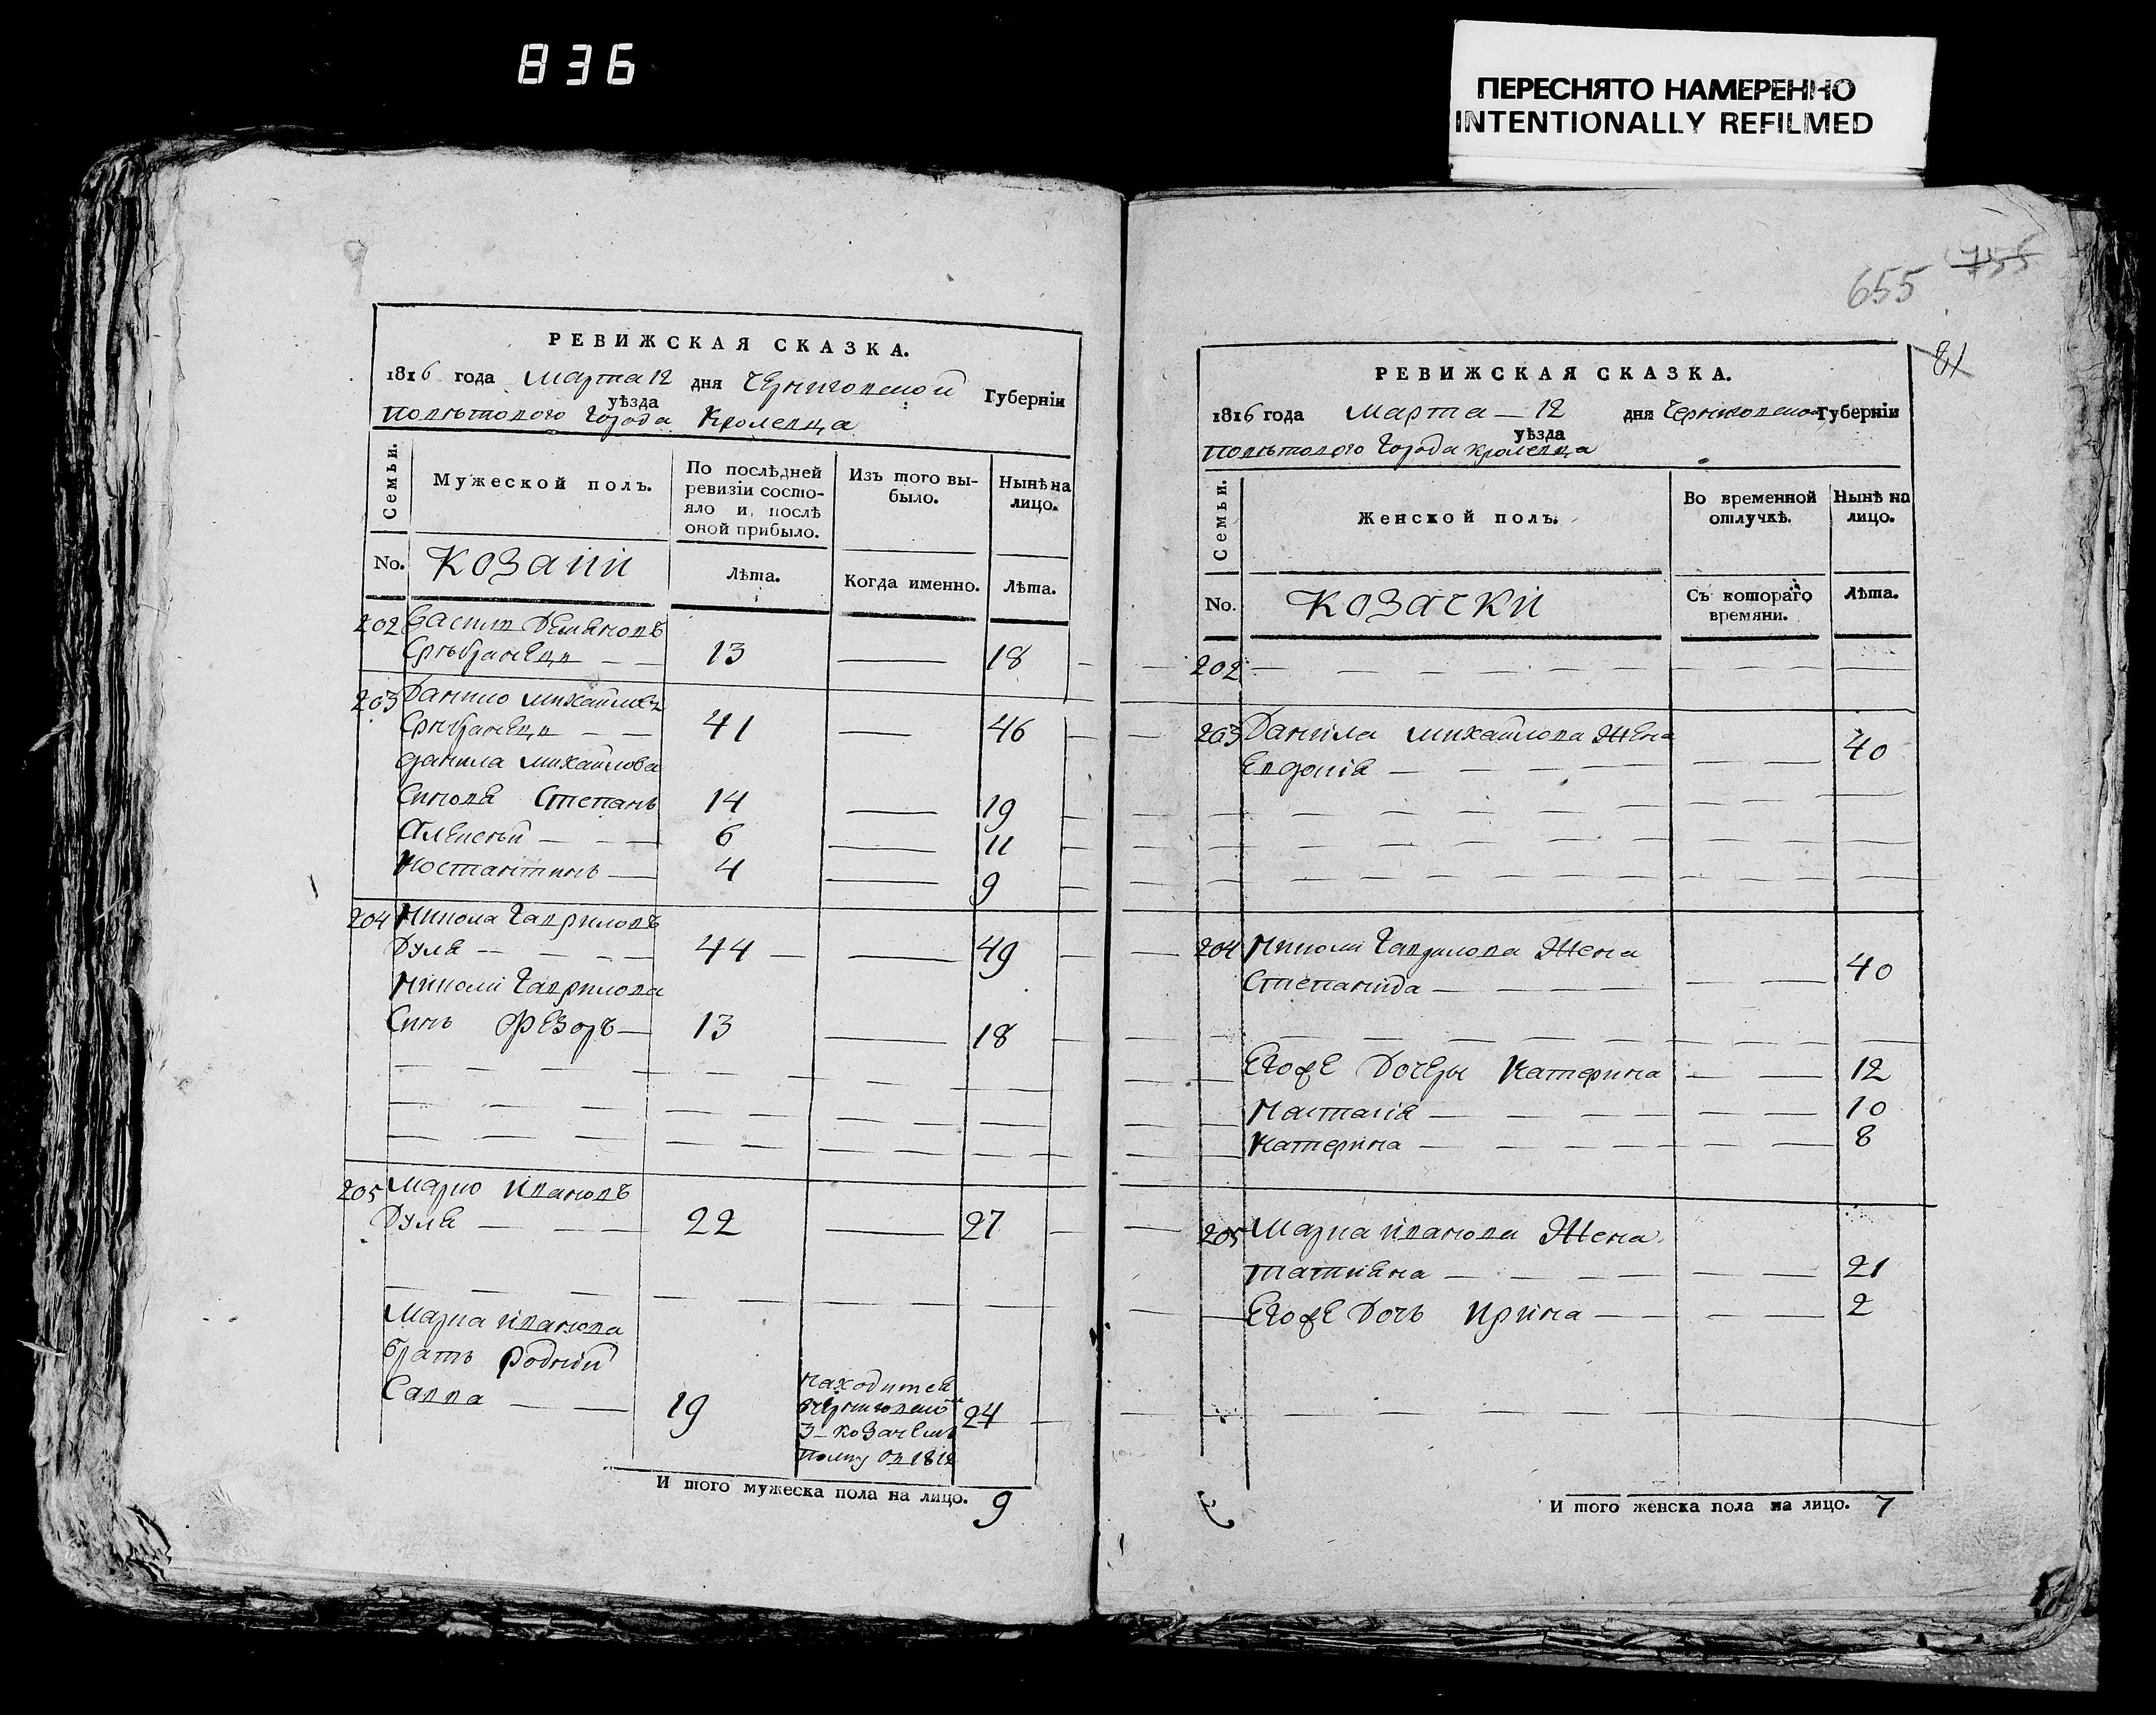 836
ПЕРЕСНЯТО НАМЕРЕННО
INTENTIONALLY REFILMED
655 755
81
РЕВИЖСКАЯ СКАЗКА.
1816 года Марта 12 дня Черниговской Губерніи
уѣзда
Повѣтового Города Кролевца
Семьи.
Мужеской полъ.
По послѣдней
ревизіи состо-
яло и послѣ
оной прибыло.
Изъ того вы-
было.
Нынѣ на
лицо.
No.
Козаки
Лѣта.
Когда именно.
Лѣта.
202 Демяновъ
13 18
203 Данило Михайловъ
41 46
Данила Михайлова
Синовя Степанъ 14 19
Алексѣй 6 11
Костантинъ 4 9
204 Никола Гавриловъ
Дуля 44 49
Николи Гаврилова
Синъ Федоръ 13 18
205 Марко Ивановъ
Дуля 22 27
Марка Иванова
братъ родній
Савва 19 24
находится
в Черниговско
3 козачемъ
полку ов 1812
И того мужеска пола на лицо. 9
РЕВИЖСКАЯ СКАЗКА.
1816 года Марта 12 дня Черниговской Губерніи
уѣзда
Повѣтового Города Кролевца
Семьи.
Женской полъ.
Во временной
отлучкѣ.
Нынѣ на
лицо.
No.
Козачки
Съ котораго
времяни.
Лѣта.
202
203 Данила Михайлова Жена
Евдокія 40
204 Николи Гаврилова Жена
Степанида 40
Егоже Дочеры Катерина 12
Настасія 10
Катерина 8
205 Марка Иванова Жена
Татияна 21
Егоже Дочь Ирина 2
И того женска пола на лицо. 7